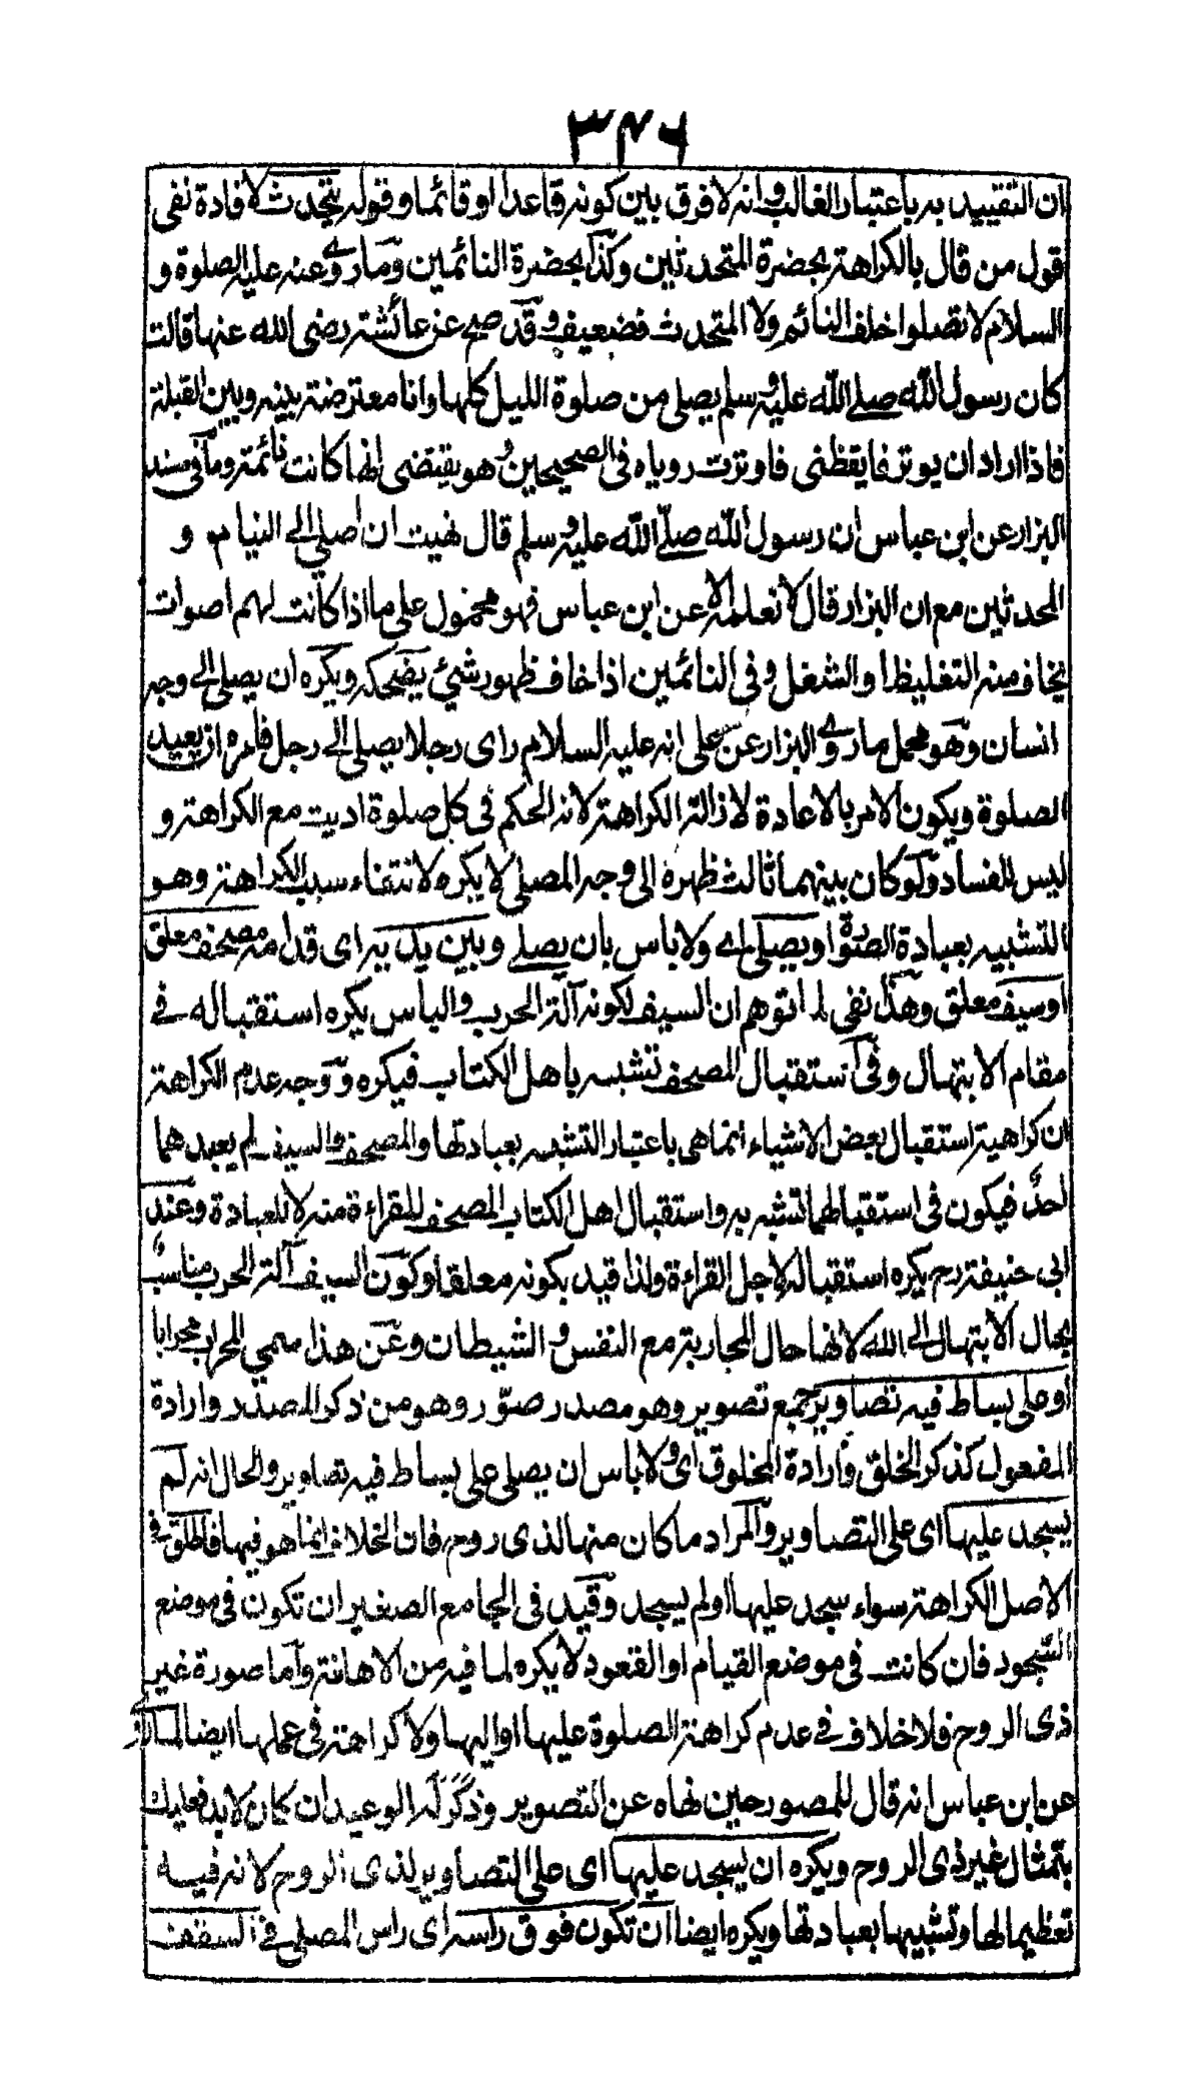 ٣٤٦
ان التقييد به باعتبار الغالب وانه لا فرق بين كونه قاعدا او قائما وقوله يتحدث لافادة نفى
قول من قال بالكراهة بحضرة المتحدثين وكذا بحضرة النائمين وما روى عنه عليه الصلوة و
السلام لا تصلوا خلف النائم ولا المتحدث فضعيف وقد صح عن عائشة رضى الله عنها قالت
كان رسول الله صلى الله عليه وسلم يصلى من صلوة الليل كلها وانا معترضة بينه وبين القبلة
فاذا اراد ان يوتر فايقظنى فاوترت روياه فى الصحيحين وهو يقتضى انها كانت نائمة وما فى مسند
البزار عن ابن عباس ان رسول الله صلى الله عليه وسلم قال نهيت ان اصلى الى النيام و
المحدثين مع ان البزار قال لا نعلمه الا عن ابن عباس فهو محمول على ما اذا كانت لهم اصوات
يخاف منه التغليظ او الشغل وفى النائمين اذا خاف ظهور شيئ يضحكه ويكره ان يصلى الى وجه
انسان وهو محمل ما روى البزار عن على انه عليه السلام راى رجلا يصلى الى رجل فامره ان يعيد
الصلوة ويكون الامر بالاعادة لازالة الكراهة لانه الحكم فى كل صلوة اديت مع الكراهة و
ليس للفساد ولو كان بينهما ثالث ظهره الى وجه المصلى لا يكره لانتفاء سبب الكراهة وهو
التشبيه بعبادة الصورة او يصلى اى ولا باس بان يصلى وبين يديه اى قدامه مصحف معلق
او سيف معلق وهذا نفى لما توهم ان السيف لكونه آلة الحرب والباس يكره استقباله فى
مقام الابتهال وفى استقبال المصحف تشبه باهل الكتاب فيكره ووجه عدم الكراهة
ان كراهية استقبال بعض الاشياء انما هى باعتبار التشبه بعبادتها والمصحف والسيف لم يعبدهما
احد فيكون فى استقبالهما تشبه به واستقبال اهل الكتاب المصحف للقراءة منه لا للعبادة وعند
ابى حنيفة رح يكره استقباله لاجل القراءة ولذا قيد بكونه معلقا وكون السيف آلة الحرب مناسب
بحال الابتهال الى الله لانها حال المحاربة مع النفس والشيطان وعن هذا سمي المحراب محرابا
او على بساط فيه تصاوير جمع تصوير وهو مصدر صور وهو من ذكر المصدر وارادة
المفعول كذكر الخلق وارادة المخلوق اى ولا باس ان يصلى على بساط فيه تصاوير والحال انه لم
يسجد عليها اى على التصاوير والمراد ما كان منها لذى روح فان الخلاف انما هو فيها فاطلق فى
الاصل الكراهة سواء سجد عليها او لم يسجد وقيد فى الجامع الصغير ان تكون فى موضع
السجود فان كانت فى موضع القيام او القعود لا يكره لما فيه من الاهانة واما صورة غير
ذى الروح فلا خلاف فى عدم كراهة الصلوة عليها او اليها ولا كراهة فى عملها ايضا لما روى
عن ابن عباس انه قال للمصور حين نهاه عن التصوير وذكر له الوعيد ان كان لا بد فعليك
بتمثال غير ذى الروح ويكره ان يسجد عليها اى على التصاوير لذى الروح لانه فيه
تعظيما لها وتشبيها بعبادتها ويكره ايضا ان تكون فوق راسه اى راس المصلى فى السقف